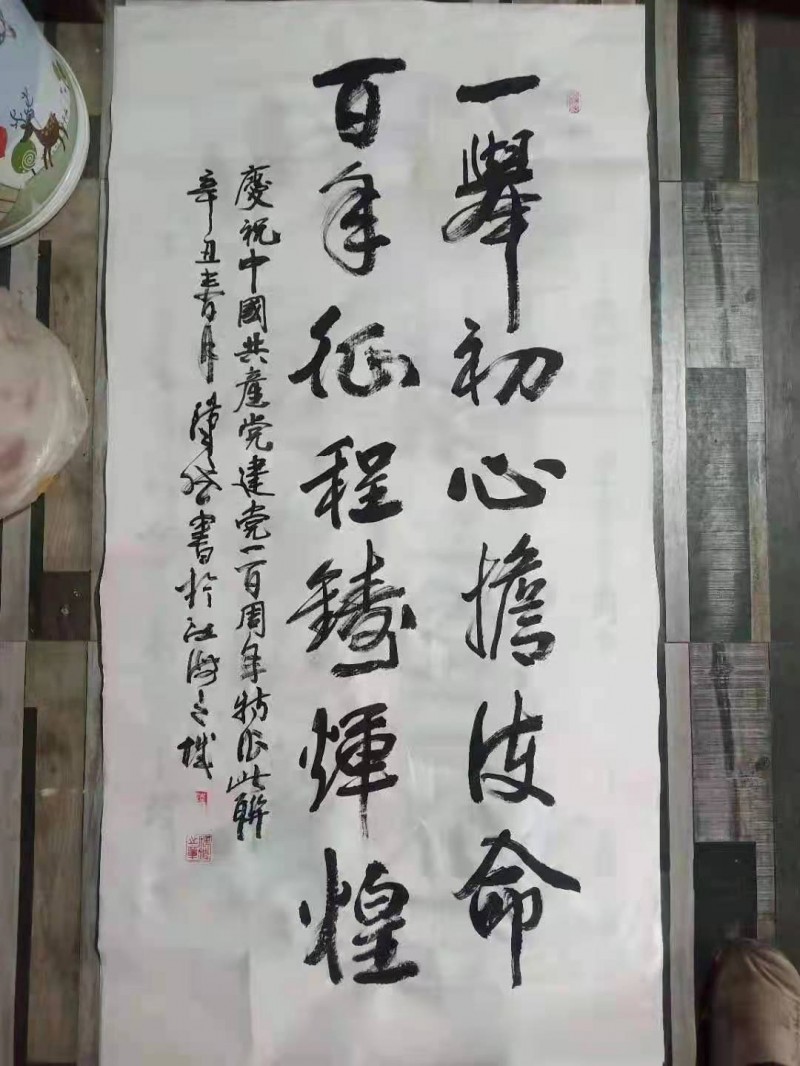 一舉初心擔使命
百年征程鑄輝煌
慶祝中國共產党建党一百周年特作此聯
辛丑春月 書於江海之城